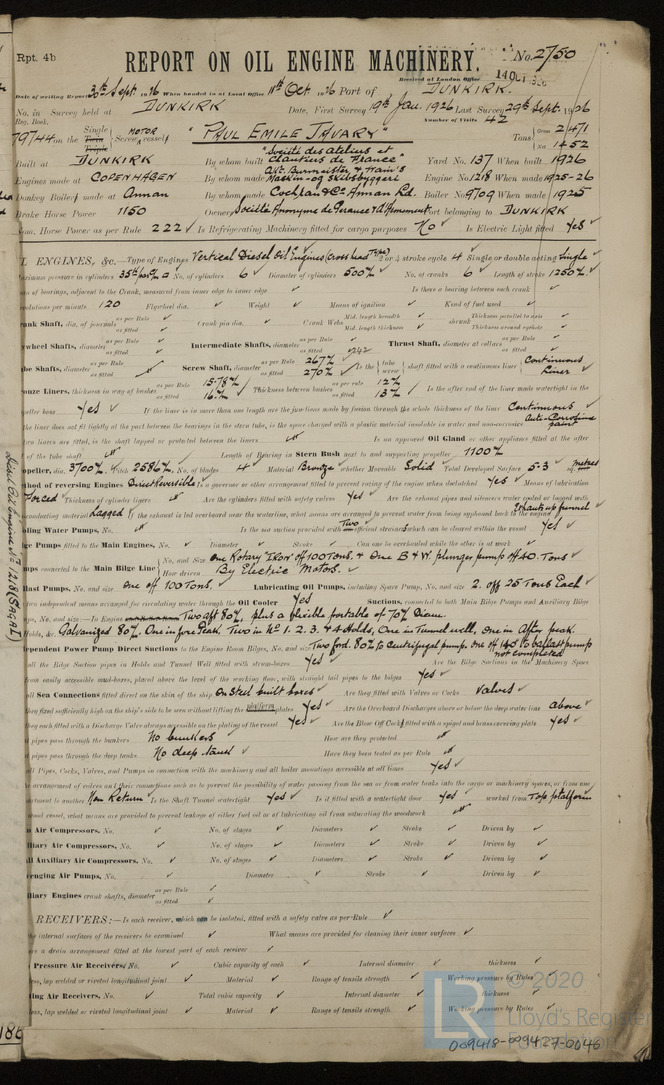 Rpt. 4b
REPORT ON OIL ENGINE MACHINERY.
No. 2750
Received at London Office 14 OCT 1926
Date of writing Report 30th Sept 1926 When handed in at Local Office 11th Oct 1926 Port of DUNKIRK.
No. in Survey held at DUNKIRK Date, First Survey 19th Jan. 1926 Last Survey 29th Sept. 1926
Reg. Book. Number of Visits 42
79744 on the Single Twin Triple Screw vessel MOTOR "PAUL EMILE JAVARY" Tons Gross 2471 Net 1452
Built at DUNKIRK By whom built "Société des Ateliers et Chantiers de France" Yard No. 137 When built 1926
Engines made at COPENHAGEN By whom made Akt. Burmeister & Wain's Maskin-og Skibsbyggeri Engine No. 1218 When made 1925-26
Donkey Boiler made at Annan By whom made Cochran & Co Annan Ltd. Boiler No. 9709 When made 1925
Brake Horse Power 1150 Owners Société Anonyme de Gerance & d'Armement Port belonging to DUNKIRK
Nom. Horse Power as per Rule 222 Is Refrigerating Machinery fitted for cargo purposes No Is Electric Light fitted Yes
OIL ENGINES, &c.—Type of Engines Vertical Diesel Oil Engines (Crosshead Type) 2 or 4 stroke cycle 4 Single or double acting Single
Maximum pressure in cylinders No. of cylinders 6 Diameter of cylinders 500 No. of cranks 6 Length of stroke 1250
Span of bearings, adjacent to the Crank, measured from inner edge to inner edge Is there a bearing between each crank
Revolutions per minute 120 Flywheel dia. Weight Means of ignition Kind of fuel used
Crank Shaft, dia. of journals as per Rule as fitted Crank pin dia. Crank Webs Mid. length breadth Mid. length thickness shrunk Thickness parallel to axis Thickness around eyehole
Flywheel Shafts, diameter as per Rule as fitted Intermediate Shafts, diameter as per Rule as fitted 242 Thrust Shaft, diameter at collars as per Rule as fitted
Tube Shafts, diameter as per Rule as fitted Screw Shaft, diameter as per Rule 267 as fitted 270 Is the tube screw shaft fitted with a continuous liner Continuous Liner
Bronze Liners, thickness in way of bushes as per Rule 15.78 as fitted 16 Thickness between bushes as per rule 12 as fitted 13 Is the after end of the liner made watertight in the
propeller boss Yes If the liner is in more than one length are the junctions made by fusion through the whole thickness of the liner Continuous
If the liner does not fit tightly at the part between the bearings in the stern tube, is the space charged with a plastic material insoluble in water and non-corrosive Anti-Corrosive paint
If two liners are fitted, is the shaft lapped or protected between the liners Is an approved Oil Gland or other appliance fitted at the after
end of the tube shaft Length of Bearing in Stern Bush next to and supporting propeller 1100
Propeller, dia. 3700 Pitch 2586 No. of blades 4 Material Bronze whether Moveable Solid Total Developed Surface 5.3 metres
Method of reversing Engines Direct Reversible Is a governor or other arrangement fitted to prevent racing of the engine when declutched Yes Means of lubrication
Forced Thickness of cylinder liners Are the cylinders fitted with safety valves Yes Are the exhaust pipes and silencers water cooled or lagged with
non-conducting material Lagged If the exhaust is led overboard near the waterline, what means are arranged to prevent water from being syphoned back to the engine Exhaust up funnel
Cooling Water Pumps, No. Is the sea suction provided with an efficient strainer which can be cleared within the vessel Two Yes
Bilge Pumps fitted to the Main Engines, No. Diameter Stroke Can one be overhauled while the other is at work
Pumps connected to the Main Bilge Line No. and Size One Rotary "Iron" of 100 Tons & One B & W. plunger pump of 40. Tons
How driven By Electric Motors.
Ballast Pumps, No. and size One of 100 Tons. Lubricating Oil Pumps, including Spare Pump, No. and size 2. off 25 Tons Each
Are two independent means arranged for circulating water through the Oil Cooler Yes Suctions, connected to both Main Bilge Pumps and Auxiliary Bilge
Pumps, No. and size:—In Engine Two aft 80, plus a flexible portable of 75 Diam.
In Holds, &c. Galvanised 80. One in fore Peak, Two in No 1. 2. 3. & 4 Holds, One in Tunnel well, one in After peak.
Independent Power Pump Direct Suctions to the Engine Room Bilges, No. and size Two ford. 80 to Centrifugal pump, one off 140 to ballast pump not completed
Are all the Bilge Suction pipes in Holds and Tunnel Well fitted with strum-boxes Yes Are the Bilge Suctions in the Machinery Space
led from easily accessible mud-boxes, placed above the level of the working floor, with straight tail pipes to the bilges Yes
Are all Sea Connections fitted direct on the skin of the ship On Steel built boxes Are they fitted with Valves or Cocks Valves
Are they fixed sufficiently high on the ship's side to be seen without lifting the platform plates Yes Are the Overboard Discharges above or below the deep water line above
Are they each fitted with a Discharge Valve always accessible on the plating of the vessel Yes Are the Blow Off Cocks fitted with a spigot and brass covering plate Yes
What pipes pass through the bunkers No bunkers How are they protected
What pipes pass through the deep tanks No deep tanks Have they been tested as per Rule
Are all Pipes, Cocks, Valves, and Pumps in connection with the machinery and all boiler mountings accessible at all times Yes
Is the arrangement of valves and their connections such as to prevent the possibility of water passing from the sea or from water tanks into the cargo or machinery spaces, or from one
compartment to another Non Return Is the Shaft Tunnel watertight Yes Is it fitted with a watertight door Yes worked from Top platform
If a wood vessel, what means are provided to prevent leakage of either fuel oil or of lubricating oil from saturating the woodwork
Main Air Compressors, No. No. of stages Diameters Stroke Driven by
Auxiliary Air Compressors, No. No. of stages Diameters Stroke Driven by
Small Auxiliary Air Compressors, No. No. of stages Diameters Stroke Driven by
Scavenging Air Pumps, No. Diameter Stroke Driven by
Auxiliary Engines crank shafts, diameter as per Rule as fitted
RECEIVERS:—Is each receiver, which can be isolated, fitted with a safety valve as per Rule
Can the internal surfaces of the receivers be examined What means are provided for cleaning their inner surfaces
Is there a drain arrangement fitted at the lowest part of each receiver
Pressure Air Receivers, No. Cubic capacity of each Internal diameter thickness
Seamless, lap welded or riveted longitudinal joint Material Range of tensile strength Working pressure by Rules
Starting Air Receivers, No. Total cubic capacity Internal diameter thickness
Seamless, lap welded or riveted longitudinal joint Material Range of tensile strength Working pressure by Rules
Diesel Oil Engine No 1218
© 2020
LR
Lloyd's Register
Foundation
009418-009427-0046